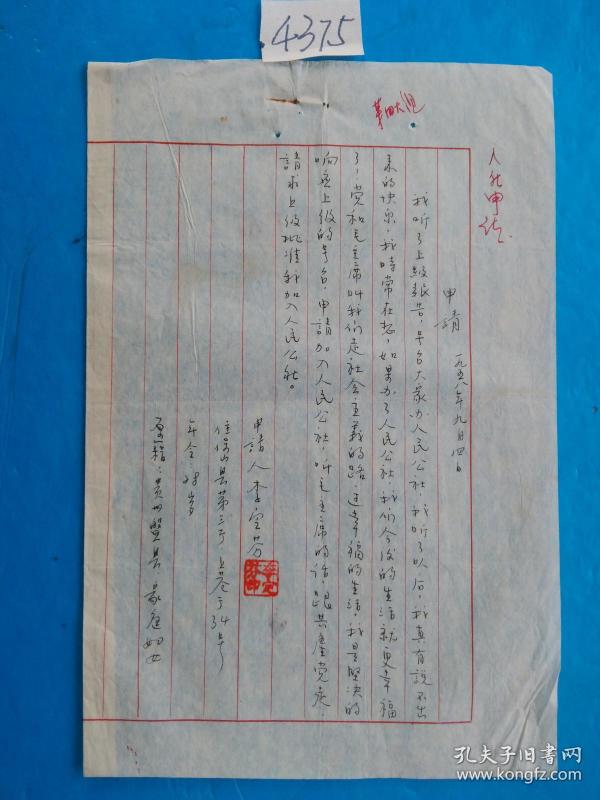 4375
第四大组
入社申请
申請 一九五八年九月四日
我听了上級报告,号召大家办人民公社,我听了以后,我真有說不出
来的快乐,我時常在想,如果办了人民公社,我们今后的生活就更幸福
了,党和毛主席叫我们走社会主義的路,过幸福的生活,我是堅决的
响应上级的号召,申請加入人民公社,听毛主席的话,跟共產党走,
請求上级批准我加入人民公社。
申請人 李室芬
住保山县第三
上巷子34号
年令:28岁
原籍:贵州盤县 家庭妇女
孔夫子旧书网
www.kongfz.com